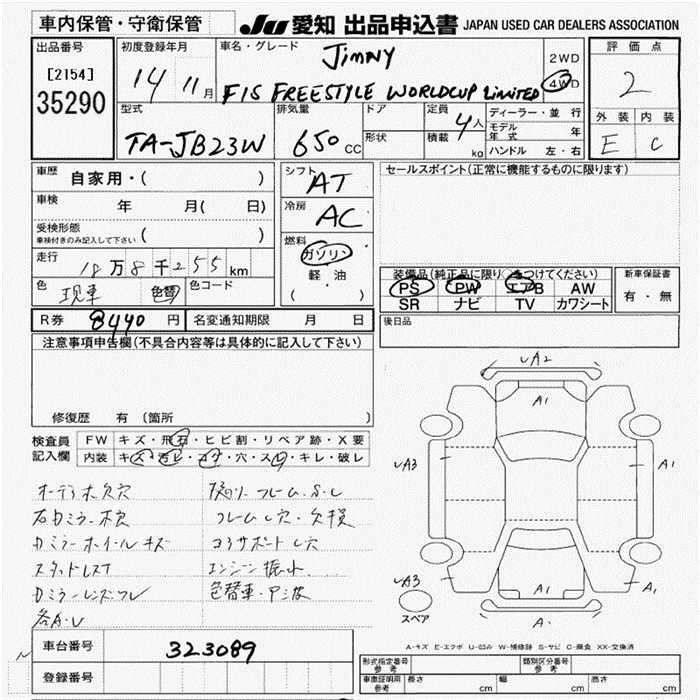 車内保管・守衛保管
JU 愛知 出品申込書 JAPAN USED CAR DEALERS ASSOCIATION
出品番号
[2154]
35290
初度登録年月
14 11月
車名・グレード
Jimny
FIS FREESTYLE WORLDCUP LIMITED
2WD
4WD
評価点
2
外装 内装
E C
型式
TA-JB23W
排気量
650 CC
ドア
形状
定員 4人
積載 kg
ディーラー・並行
モデル年式 年
ハンドル 左・右
車歴 自家用・( )
車検 年 月( 日)
受検形態
車検付きのみ記入して下さい ( )
走行 18万8千255km
色 現車 色替 色コード
シフト AT
冷房 AC
燃料
ガソリン
軽油
( ・ )
セールスポイント(正常に機能するものに限ります)
装備品(純正品に限り○をつけてください)
PS PW エアB AW
SR ナビ TV カワシート
新車保証書
有・無
R券 8440円 名変通知期限 月 日
後日品
注意事項申告欄(不具合内容等は具体的に記入して下さい)
修復歴 有 (箇所 )
検査員記入欄
FW キズ・飛石・ヒビ割・リペア跡・X要
内装 キズ・汚レ・コゲ・穴・スレ・キレ・破レ
オーディオ欠穴
右カミラー欠
カミラーホイールキズ
スタッドレスT
カミラーレンズワレ
各A・U
フレーム S・C
フレームC穴・欠損
コアサポートC穴
エンジン振れ
色替車・
√A2
A1
√A3
A1
√A3
A1
A1
A
スペア
A-キズ E-エクボ U-凹み W-補修跡 S-サビ C-腐食 XX-交換済
車台番号 323089
登録番号
型式指定番号
参考
類別区分番号
参考
車庫証明用
参考
長さ cm 幅 cm 高さ cm